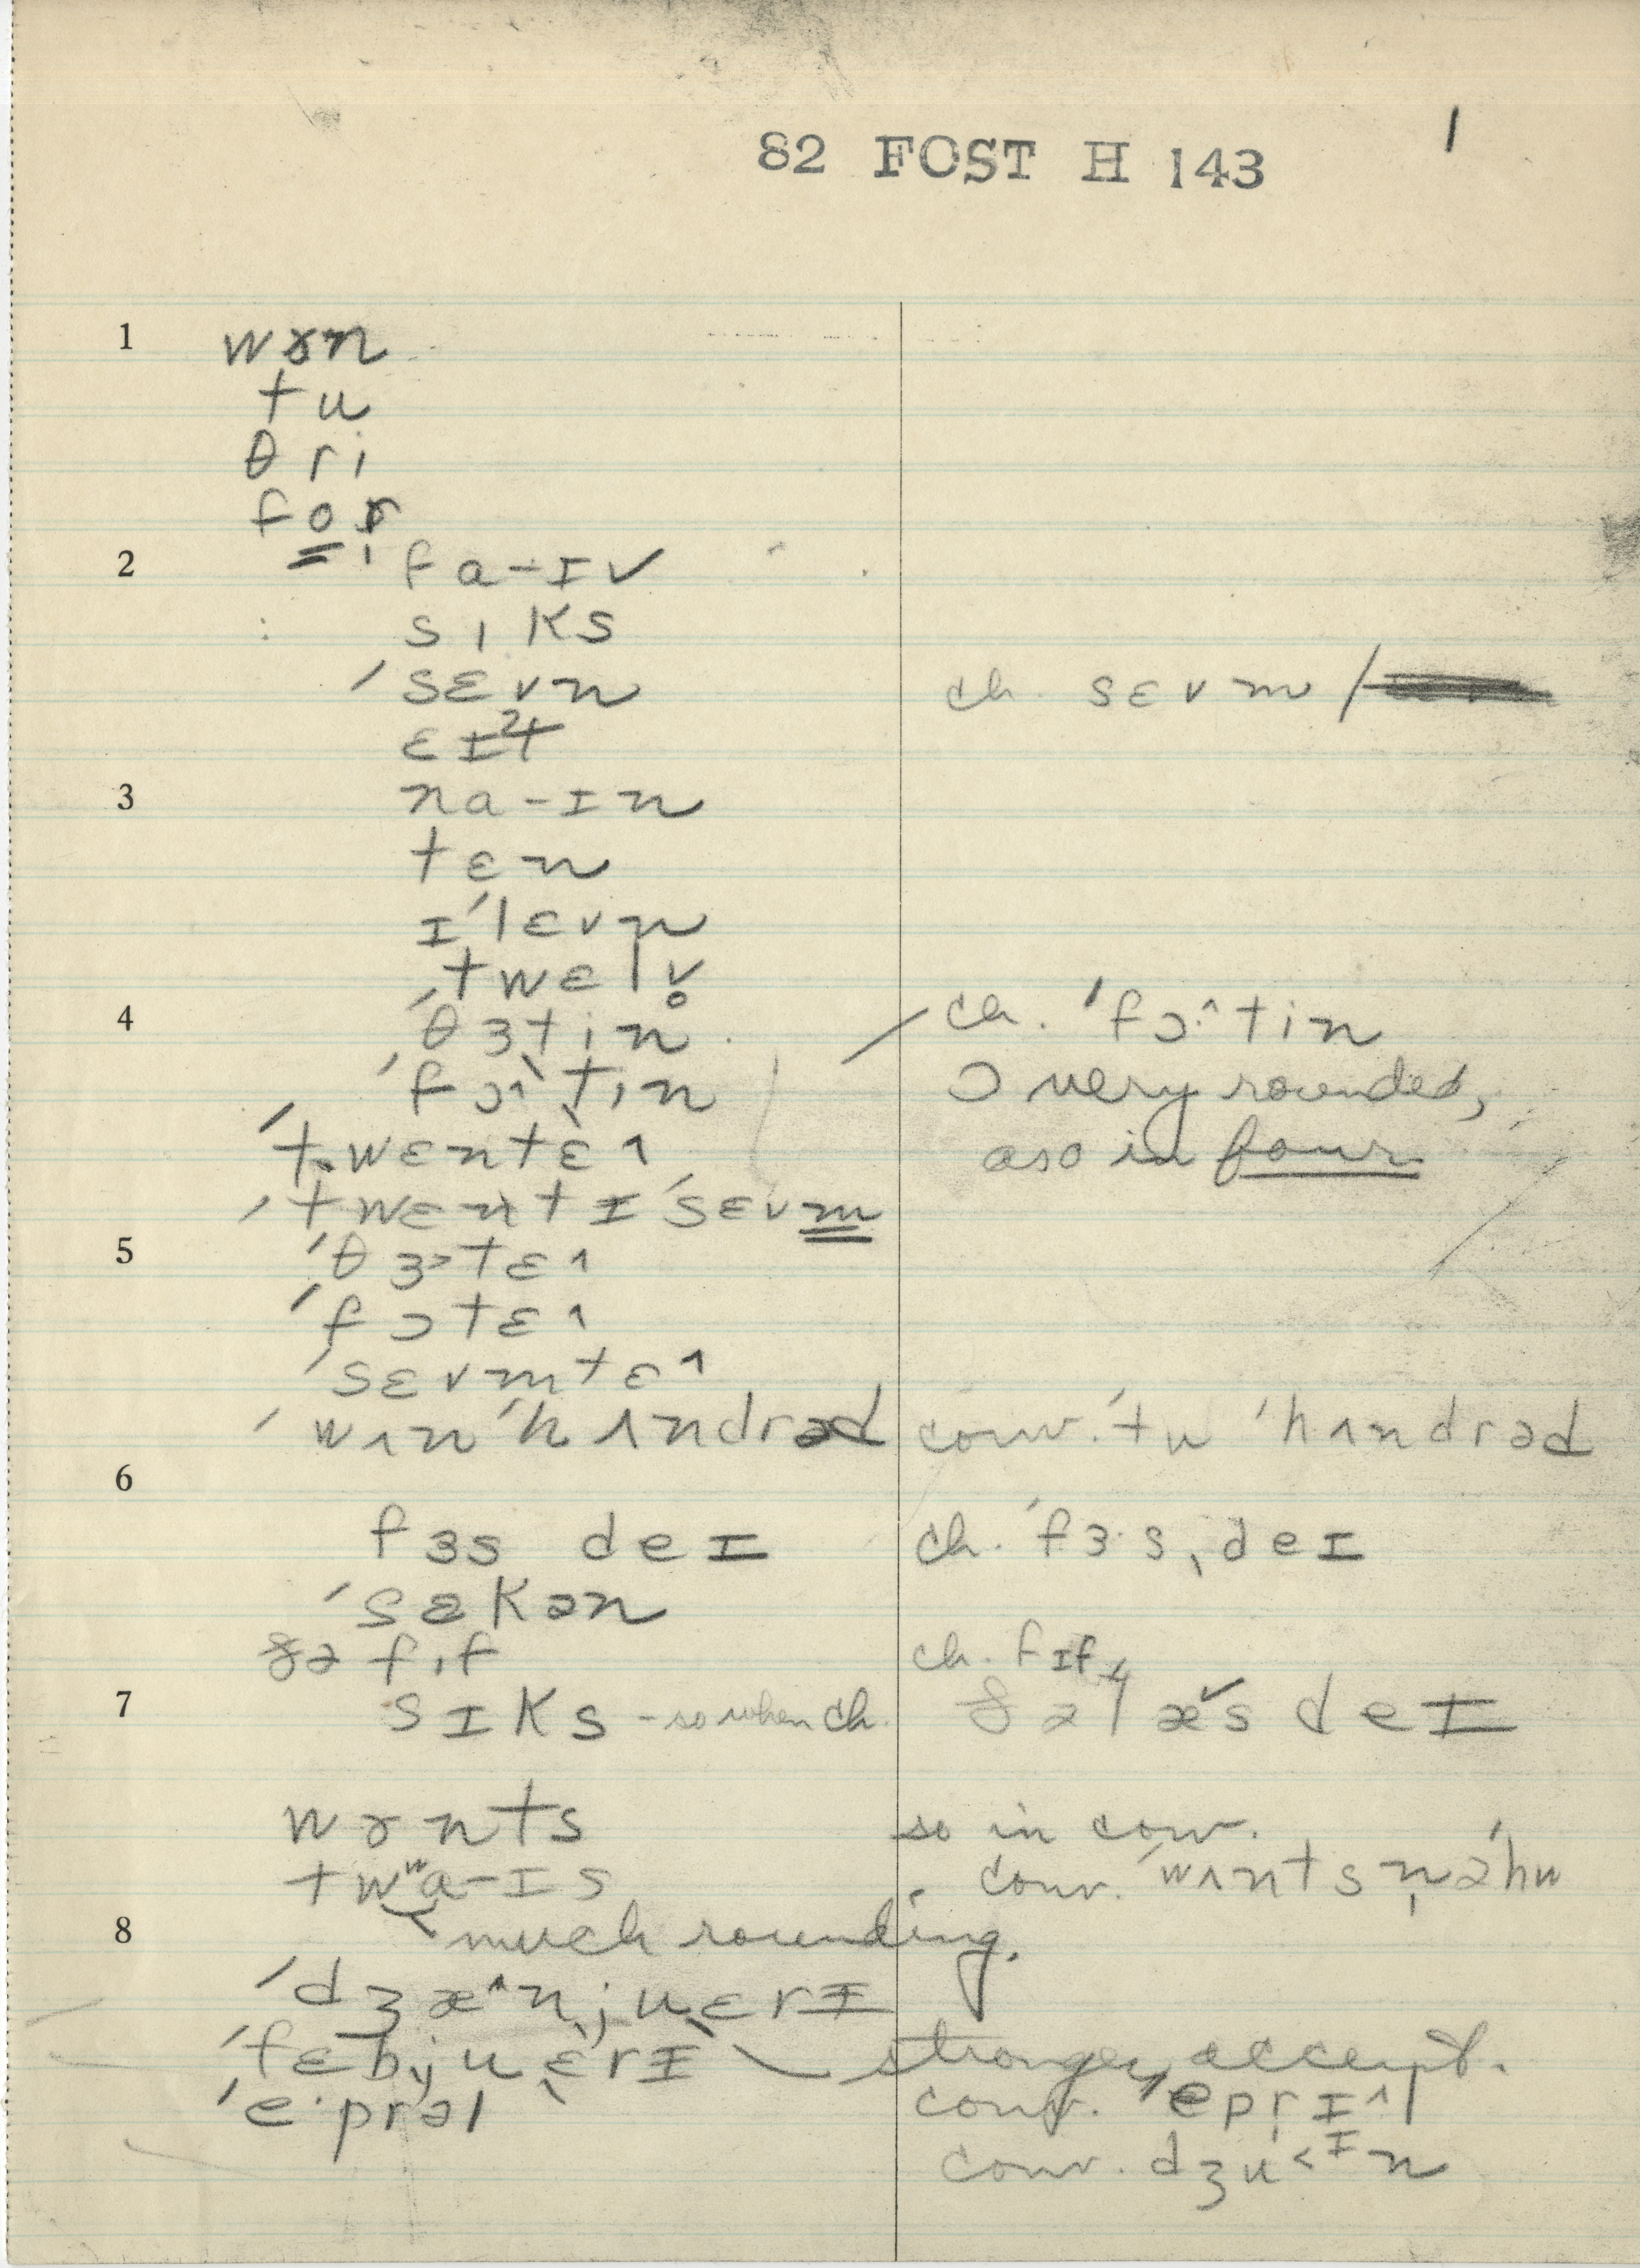 82 FOST H 143
1
1 wɤn
tu
θri
for
2 fa-ɪv
sɪks
ˈsɛvn ch. sɛvm /
ɛɪt
3 na-ɪn
tɛn
ɪˈlɛvn
twɛlv̥
4 ˈθɜtin ch. ˈfɔ˄tin
ˈfɔ˄ˌtin ɔ very rounded,
ˈtwɛnˌtɛ˄ also in four
ˈtwɛntɪˈsɛvm
5 ˈθɜ>tɛ˄
ˈfɔtɛ˄
ˈsɛvmtɛ˄
ˈwʌnˈhʌndrəd conv. ˈtu ˈhʌndrəd
6
fɜs deɪ ch. ˈfɜ·sˌdeɪ
ˈsɛkən
ðə fɪf ch. fɪf
7 sɪks - so when ch. ðə læ˅s deɪ
wɤnts so in conv.
twʷa-ɪs conv. ˈwʌnts n̩əˈhw
8 much rounding.
ˈdʒæ˄njuˌɛrɪ
ˈfɛbjuˌɛrɪ stronger accent.
ˈe·prəl conv. ˈeprɪ˄l
conv. dʒu<ɪn